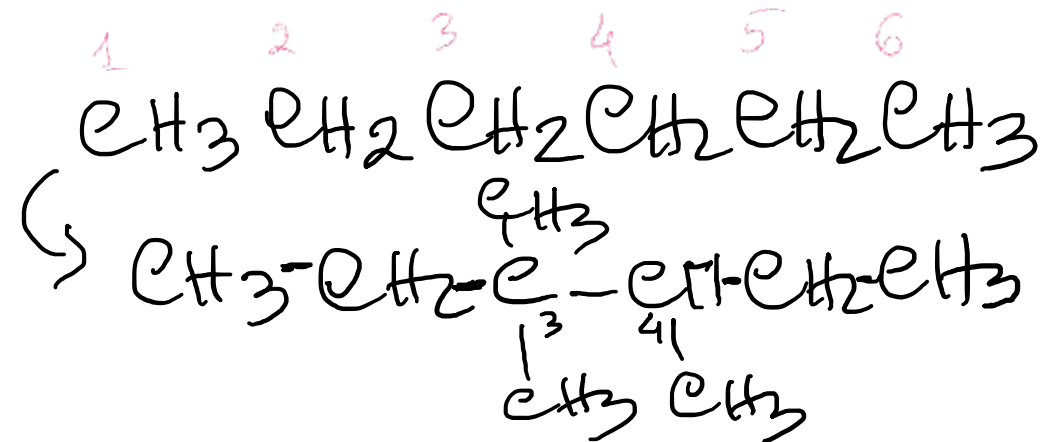 1 2 3 4 5 6
CH3 CH2 CH2 CH2 CH2 CH3
CH3
CH3-CH2-C-CH-CH2-CH3
3 4
CH3 CH3